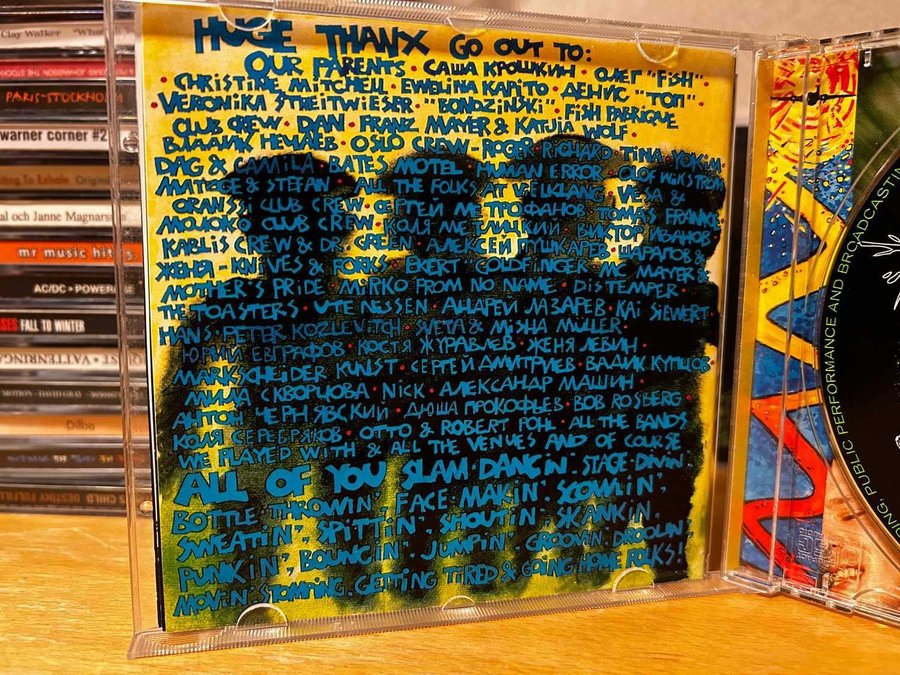 HUGE THANX GO OUT TO:
OUR PARENTS • САША КРОШКИН • ОЛЕГ "FISH" •
• CHRISTINE MITCHELL • EWELINA KAPITO • ДЕНИС "ТОП" •
VERONIKA STREITWIESER • "BONDZINSKI" • FISH FABRIQUE
CLUB CREW • DAN • FRANZ MAYER & KATJIA WOLF •
ВЛАДИК НЕЧАЕВ • OSLO CREW - ROGER RICHARD • TINA
DAG & CAMILA • BATES MOTEL • HUMAN ERROR • OLOF WIKSTROM
& STEFAN • ALL THE FOLKS AT VEIKLANG • VESA &
CLUB CREW • СЕРГЕЙ МЕТРОФАНОВ • TOMAS FRANKE
МОЛОКО CLUB CREW • КОЛЯ МЕТЛИЦКИЙ • ВИКТОР ИВАНОВ •
KARLIS CREW & DR. GREEN • АЛЕКСЕЙ ПУШКАРЕВ • ШАРАПОВ &
ЖЕНЯ - KNIVES & FORKS • EKERT • GOLDFINGER • MC MAYER &
MOTHER'S PRIDE • MIRKO FROM NO NAME • DISTEMPER •
THE TOASTERS • UTE NESSEN • АНДРЕЙ ЛАЗАРЕВ • KAI SIEWERT
HANS-PETER KOZLEVITCH • SVETA & MISHA MÜLLER •
ЮРИЙ ЕВГРАФОВ • КОСТЯ ЖУРАВЛЕВ • ЖЕНЯ ЛЕВИН •
MARK SCHEIDER KUNST • СЕРГЕЙ ДМИТРИЕВ • ВАДИК КУПЦОВ
МИЛА СКВОРЦОВА • NICK • АЛЕКСАНДР МАШИН •
АНТОН ЧЕРНЯВСКИЙ • ДЮША ПРОКОФЬЕВ • BOB ROSBERG
КОЛЯ СЕРЕБРЯКОВ • OTTO & ROBERT POHL • ALL THE BANDS
WE PLAYED WITH & ALL THE VENUES AND OF COURSE
ALL OF YOU SLAM-DANCIN', STAGE-DIVIN',
BOTTLE THROWIN', FACE-MAKIN', SCOWLIN',
SWEATIN', SPITTIN', SHOUTIN', SKANKIN',
PUNKIN', BOUNCIN', JUMPIN', GROOVIN', DROOLIN',
MOVIN' STOMPING, GETTING TIRED & GOING HOME FOLKS!
PUBLIC PERFORMANCE AND BROADCASTING
Clay Walker "What
PARIS-STOCKHOLM
warner corner #2
To Exhale Original
al och Janne Magnars
mr music hits
AC/DC • POWERAGE
FALL TO WINTER
Dilba
CHILD DESTINY FULFILLED